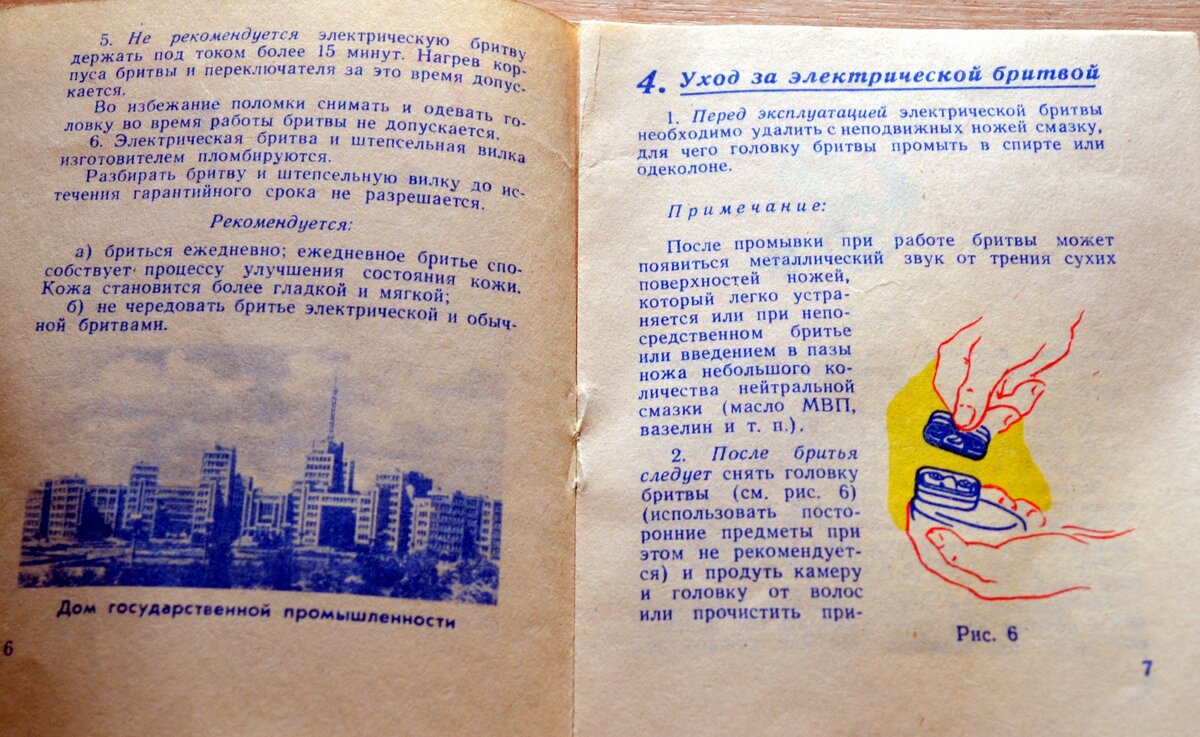 5. Не рекомендуется электрическую бритву
держать под током более 15 минут. Нагрев кор-
пуса бритвы и переключателя за это время допус-
кается.
Во избежание поломки снимать и одевать го-
ловку во время работы бритвы не допускается.
6. Электрическая бритва и штепсельная вилка
изготовителем пломбируются.
Разбирать бритву и штепсельную вилку до ис-
течения гарантийного срока не разрешается.
Рекомендуется:
а) бриться ежедневно; ежедневное бритье спо-
собствует процессу улучшения состояния кожи.
Кожа становится более гладкой и мягкой;
б) не чередовать бритье электрической и обыч-
ной бритвами.
Дом государственной промышленности
6
4. Уход за электрической бритвой
1. Перед эксплуатацией электрической бритвы
необходимо удалить с неподвижных ножей смазку,
для чего головку бритвы промыть в спирте или
одеколоне.
Примечание:
После промывки при работе бритвы может
появиться металлический звук от трения сухих
поверхностей ножей,
который легко устра-
няется или при непо-
средственном бритье
или введением в пазы
ножа небольшого ко-
личества нейтральной
смазки (масло МВП,
вазелин и т. п.).
2. После бритья
следует снять головку
бритвы (см. рис. 6)
(использовать посто-
ронние предметы при
этом не рекомендует-
ся) и продуть камеру
и головку от волос
или прочистить при-
Рис. 6
7